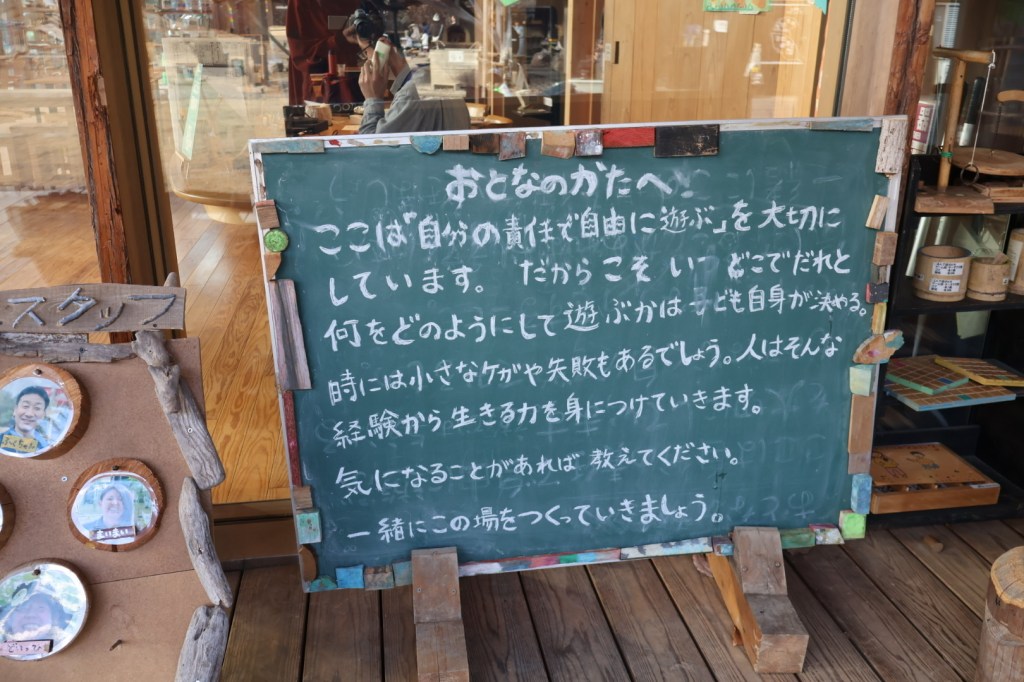 おとなのかたへ
ここは「自分の責任で自由に遊ぶ」を大切に
しています。 だからこそ いつ どこでだれと
何をどのようにして遊ぶかは 子ども自身が決める。
時には小さなケガや失敗もあるでしょう。人はそんな
経験から生きる力を身につけていきます。
気になることがあれば 教えてください。
一緒にこの場をつくっていきましょう。
スタッフ
まいまい